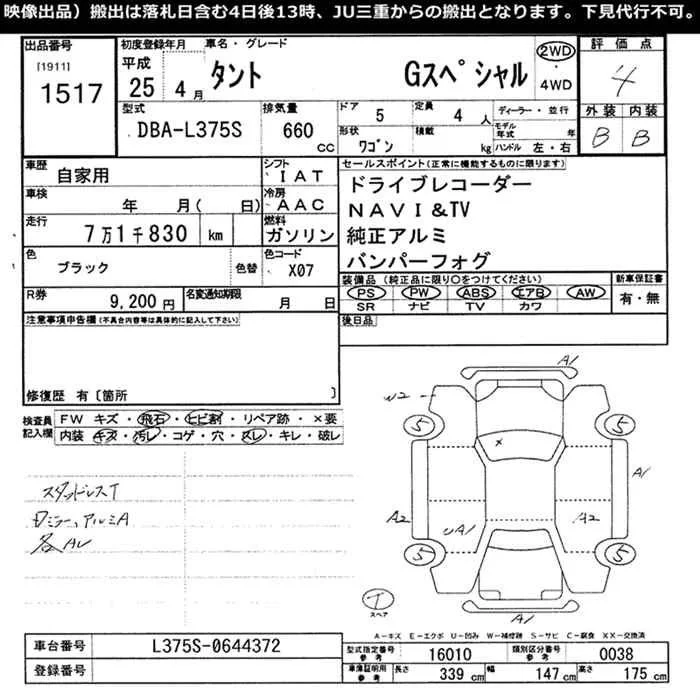 映像出品）搬出は落札日含む4日後13時、JU三重からの搬出となります。下見代行不可。
出品番号
[1911]
1517
初度登録年月
平成
25 4月
車名・グレード
タント Gスペシャル
2WD
4WD
評価点
4
外装 内装
B B
型式
DBA-L375S
排気量
660 CC
ドア
5
定員
4 人
ディーラー・並行
形状
ワゴン
積載
kg
モデル年式 年
ハンドル 左・右
車歴
自家用
シフト
IAT
車検
年 月( 日)
冷房
AAC
走行
7万1千830 km
燃料
ガソリン
色
ブラック
色替
色コード
X07
R券
9,200円
名変通知期限
月 日
セールスポイント(正常に機能するものに限ります)
ドライブレコーダー
NAVI&TV
純正アルミ
バンパーフォグ
装備品(純正品に限り○をつけてください)
PS PW ABS エアB AW
SR ナビ TV カワ
新車保証書
有・無
後日品
注意事項申告欄(不具合内容等は具体的に記入して下さい)
修復歴 有〔箇所 〕
検査員記入欄
FW キズ・飛石・ヒビ割・リペア跡・×要
内装・キズ・汚レ・コゲ・穴・スレ・キレ・破レ
スタッドレスT
ミラー、アルミA
各AU
A1
W2
5
5
×
A1
A2
UA1
A2
5
5
T
スペア
A1
A-キズ E-エクボ U-凹み W-補修跡 S-サビ C-腐食 XX-交換済
車台番号
L375S-0644372
登録番号
型式指定番号
参考
16010
類別区分番号
参考
0038
車庫証明用
参考
長さ
339 cm
幅
147 cm
高さ
175 cm